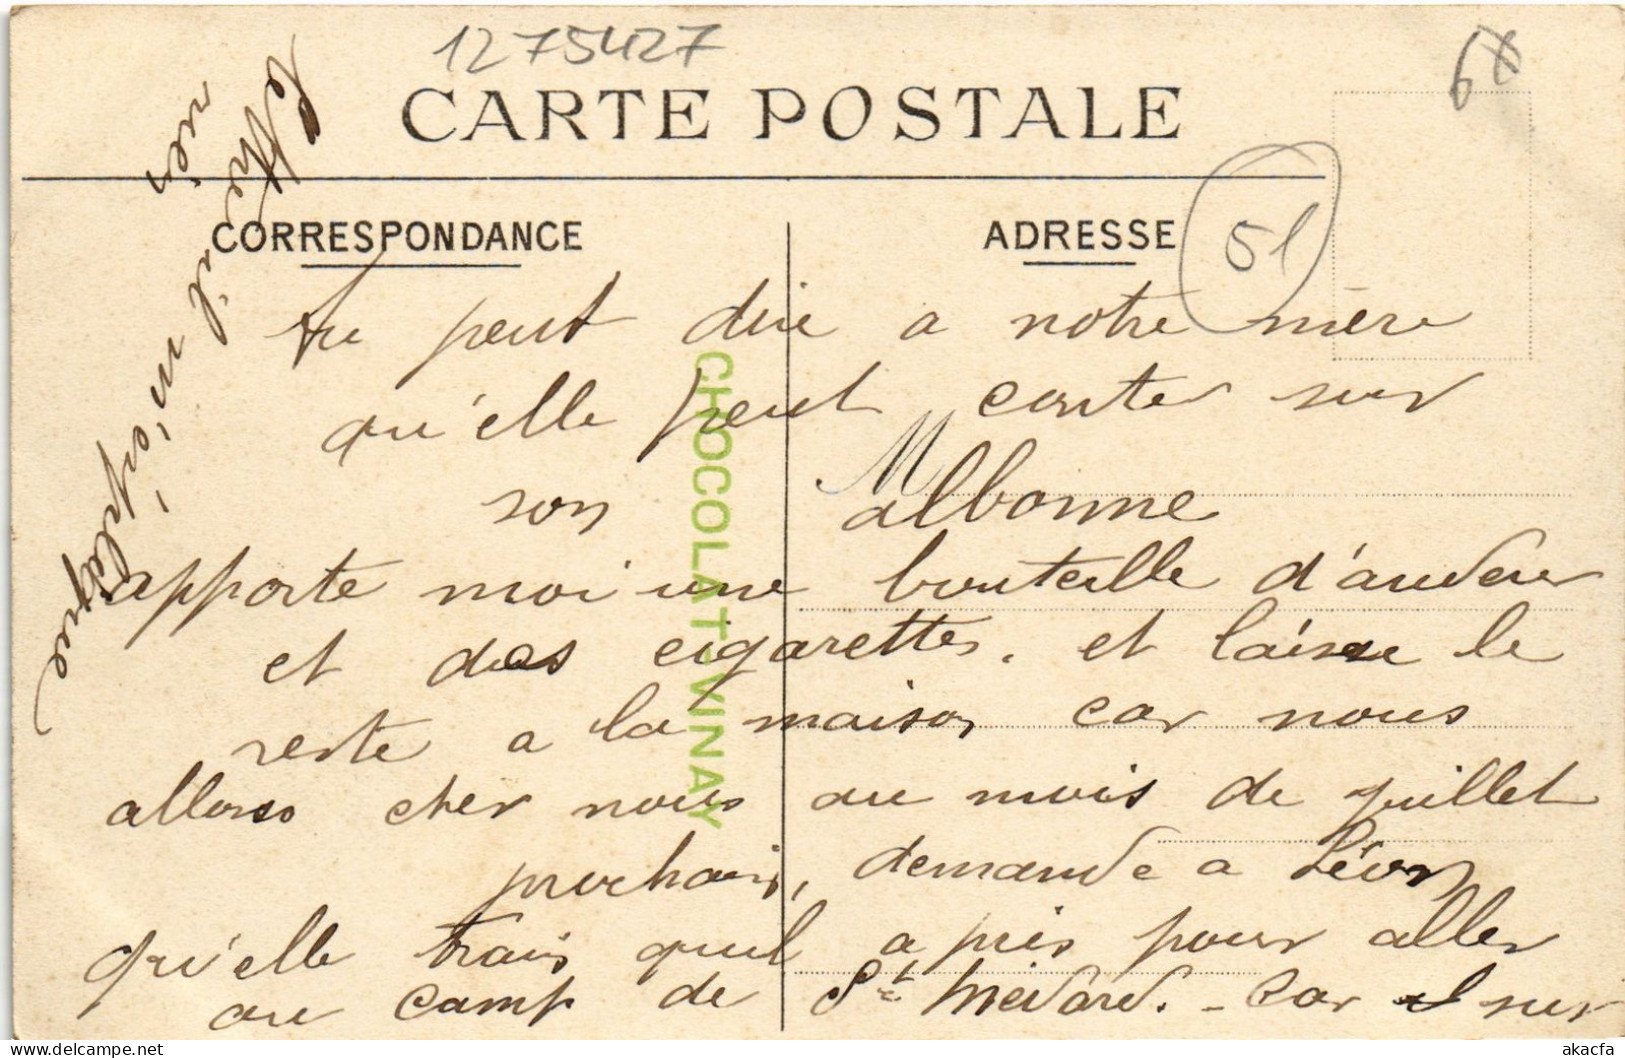 1275427
6x
CARTE POSTALE
CORRESPONDANCE
ADRESSE
51
tu peut dire a notre mère
qu'elle peut conter sur
son Malbonne
apporte moi une bouteille d'andeur
et des cigarettes. et laisse le
reste a la maison car nous
allons cher nous au mois de juillet
prochain, demande a Léon
qu'elle trais quil a pris pour aller
au camp de St Médard. - Car sur
cette il m'explique
rien
CHOCOLAT-VINAY
akacfa